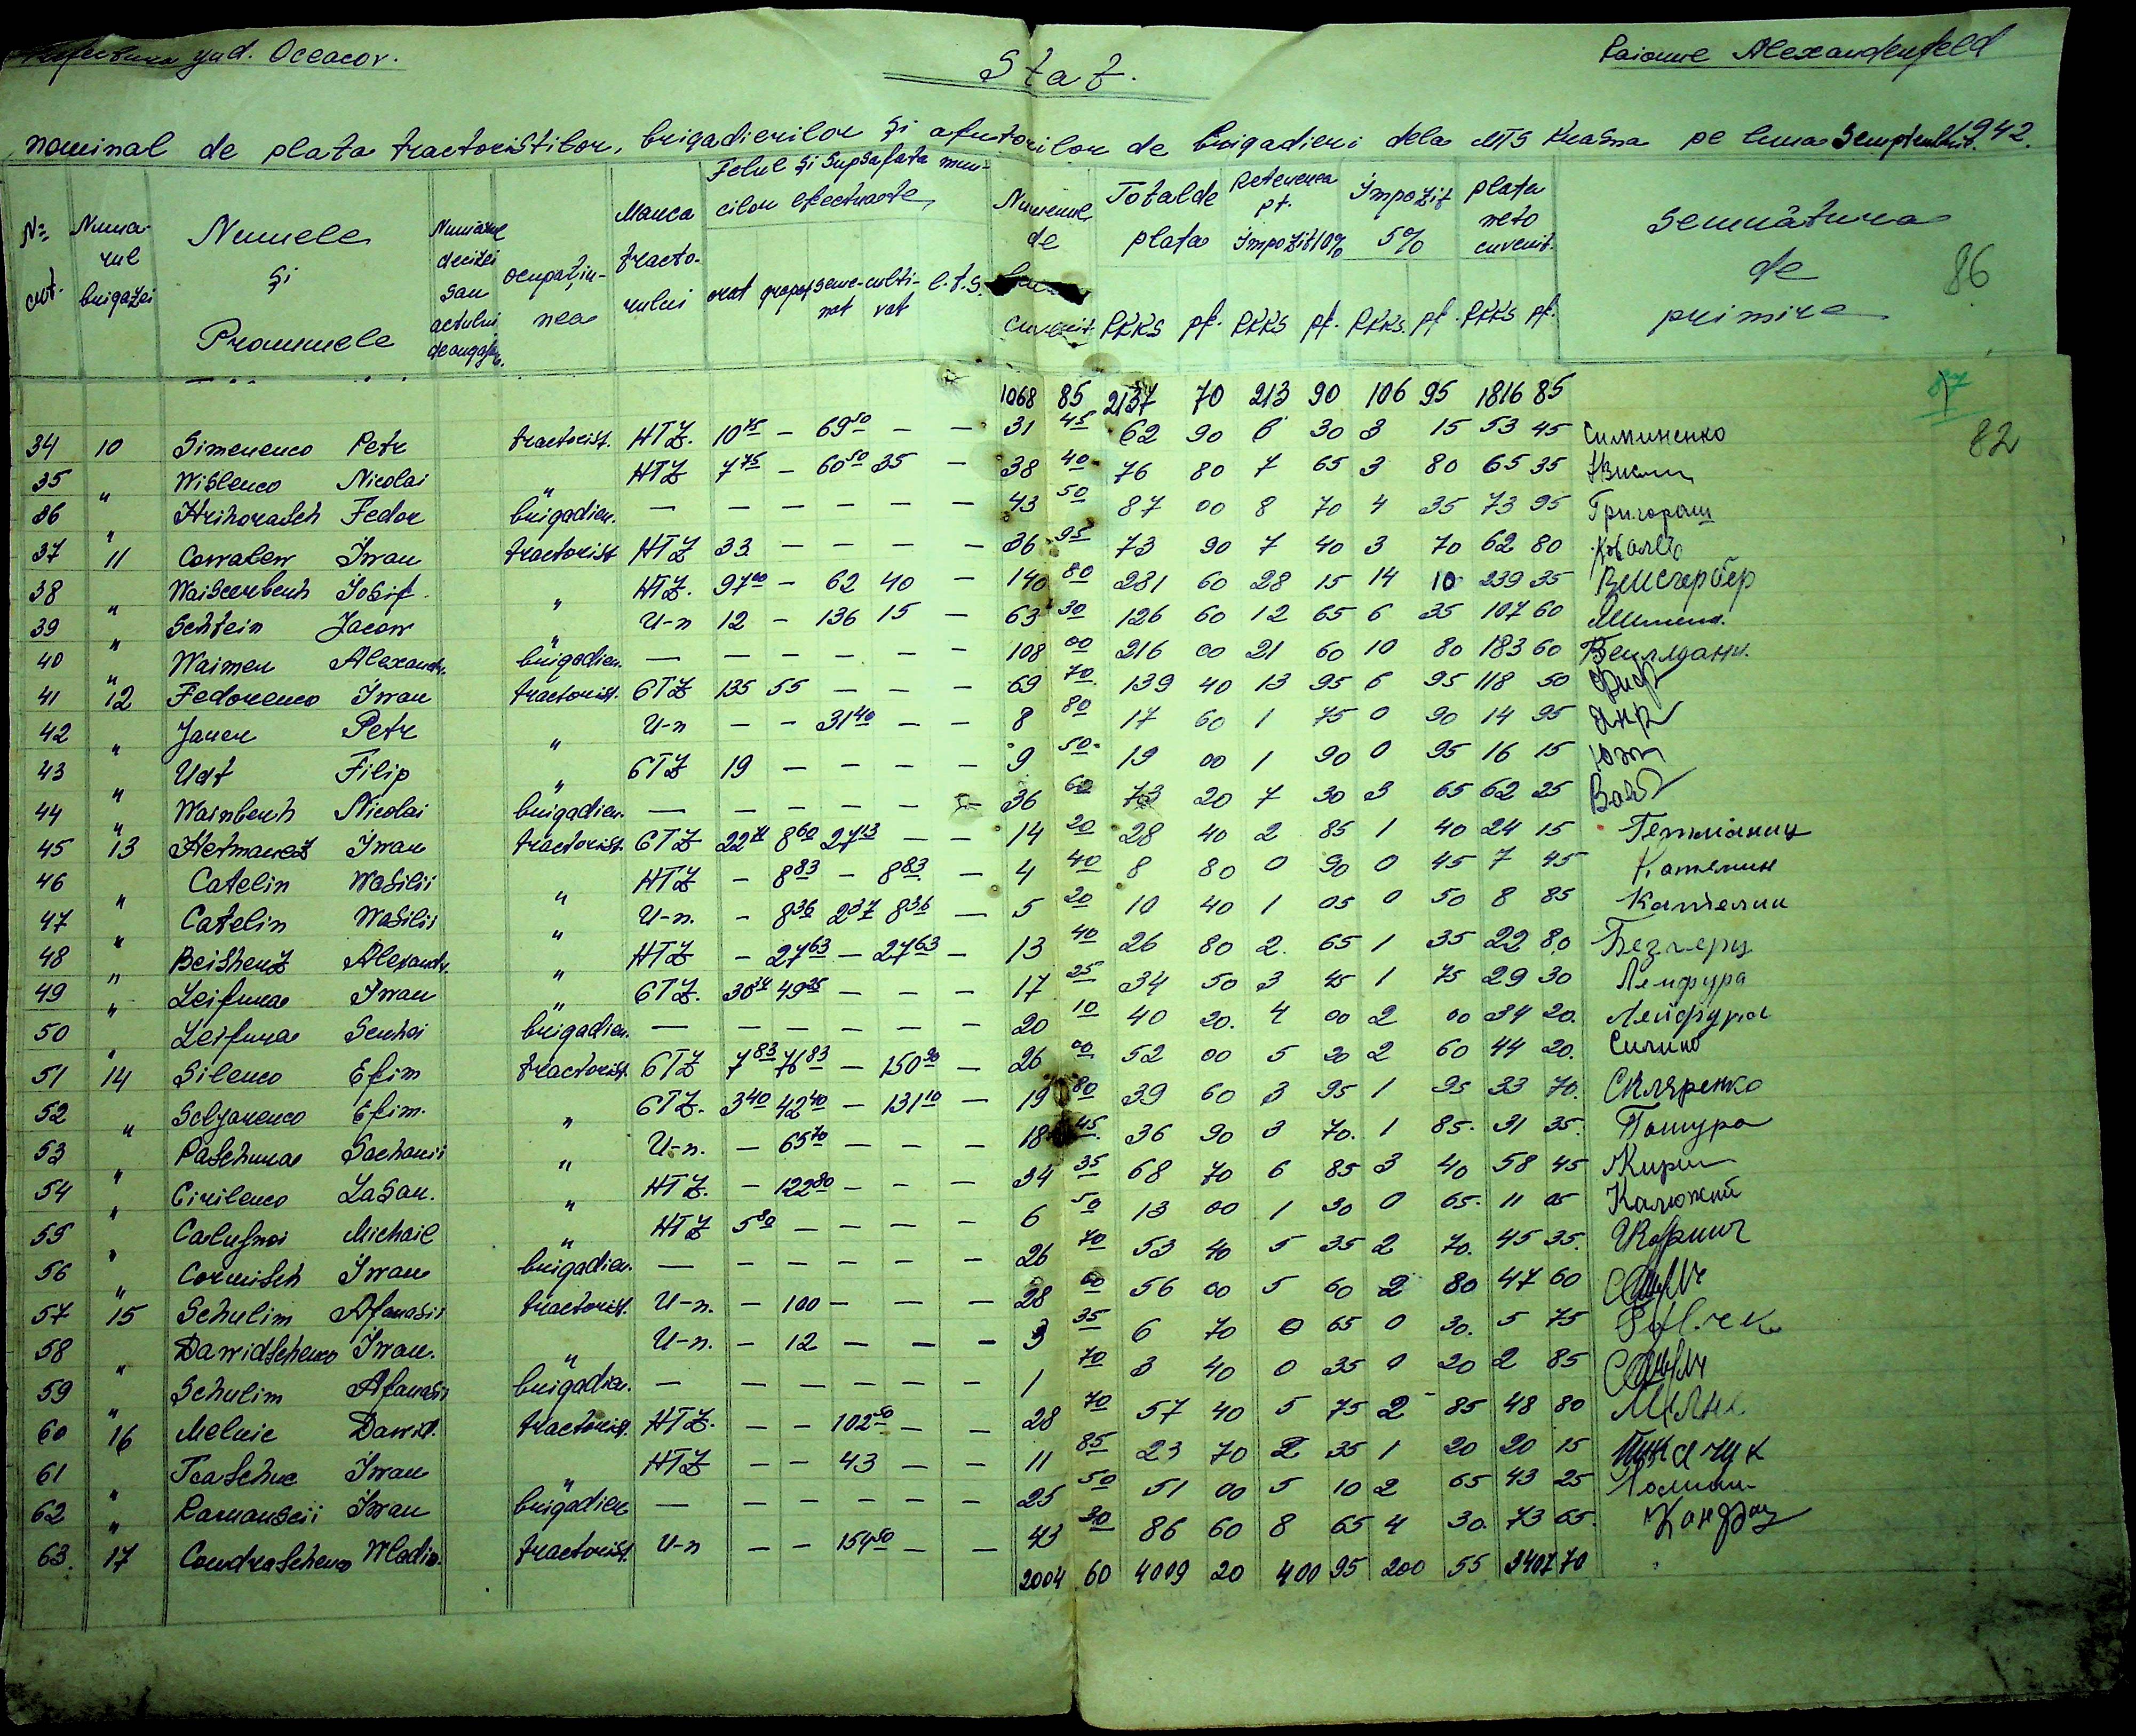 Prefectura jud. Oceacov.
Stat.
Raionul Alexandenfeld
nominal de plata tractoristilor, brigadierilor și afutorilor de brigadieri dela MTS Krasna pe luna Semptembrie 1942.
No crt. | Numarul brigazei | Numele și Pronumele | Numărul deciziei sau actului de angajare. | ocupațiunea | Marca tractorului | Felul și supsafata muncilor efectuate, | Numerul de cuvenit | Total de plata | Retenerea pt. impozit 10% | Impozit 5% | plata neto cuvenit. | Semnătura de primire
arat | grapat | seme-nat | culti-vat | c.t.s. | RKKS pf. | RKKS pf. | RKKS. pf. | RKKS pf.
86
87
82
1068 85 2137 70 213 90 106 95 1816 85
34 10 Simenenco Petr tractorist. HTZ. 10 75 — 69 50 — — 31 45 62 90 6 30 3 15 53 45 Симиненко
35 " Wislenco Nicolai " HTZ 7 75 — 60 50 35 — 38 40 76 80 7 65 3 80 65 35
36 " Hrihorasch Fedor brigadier. — — — — — — 43 50 87 00 8 70 4 35 73 95 Григораш
37 11 Cowalew Iwan tractorist HTZ 33 — — — — 36 95 73 90 7 40 3 70 62 80
38 " Waiscerberh Iosif. " HTZ. 97 00 — 62 40 — 140 80 281 60 28 15 14 10 239 35 Вейсгербер
39 " Schtein Jacow " U-n 12 — 136 15 — 63 30 126 60 12 65 6 35 107 60
40 " Waimer Alexandr. brigadier. — — — — — — 108 00 216 00 21 60 10 80 183 60
41 12 Fedorenco Iwan tractorist. CTZ 135 55 — — — 69 70 139 40 13 95 6 95 118 50
42 " Janer Petr " U-n — — 31 40 — — 8 80 17 60 1 75 0 90 14 95 Янр
43 " Udt Filip " CTZ 19 — — — — 9 50 19 00 1 90 0 95 16 15
44 " Wainberh Nicolai brigadier. — — — — — — 36 60 73 20 7 30 3 65 62 25
45 13 Hetmanez Iwan tractorist. CTZ 22 71 8 60 27 13 — — 14 20 28 40 2 85 1 40 24 15 Гетманиц
46 " Catelin Wasilii " HTZ — 8 83 — 8 83 — 4 40 8 80 0 90 0 45 7 45 Кателин
47 " Catelin Wasilii " U-n. — 8 36 2 37 8 36 — 5 20 10 40 1 05 0 50 8 85 Кателин
48 " Beisherz Alexandr. " HTZ — 27 63 — 27 63 — 13 40 26 80 2. 65 1 35 22 80
49 " Leifura Iwan " CTZ. 30 34 49 25 — — — 17 25 34 50 3 45 1 75 29 30 Лейфура
50 " Leifura Serhei brigadier. — — — — — — 20 10 40 20. 4 00 2 00 34 20. Лейфура
51 14 Silenco Efim tractorist. CTZ 7 83 76 83 — 150 90 — 26 00 52 00 5 20 2 60 44 20. Силико
52 " Sclyarenco Efim. " CTZ. 3 40 42 40 — 131 10 — 19 80 39 60 3 95 1 95 33 70. Скляренко
53 " Paschura Sachar " U-n. — 65 70 — — — 18 45 36 90 3 70. 1 85. 31 35. Пашура
54 " Cirilenco Lasar. " HTZ. — 122 80 — — — 34 35 68 70 6 85 3 40 58 45 Кирил
55 " Calufnoi Michail " HTZ 5 80 — — — — 6 50 13 00 1 30 0 65. 11 05 Калюжний
56 " Cornisch Iwan brigadier. — — — — — — 26 70 53 40 5 35 2 70. 45 35.
57 15 Schulim Afanasii tractorist. U-n. — 100 — — — 28 00 56 00 5 60 2 80 47 60
58 " Dawidschenco Iwan. " U-n. — 12 — — — 3 35 6 70 0 65 0 30. 5 75
59 " Schulim Afanasii brigadier. — — — — — — 1 70 3 40 0 35 0 20 2 85
60 16 Melnic Dawid. tractorist. HTZ. — — 102 50 — — 28 70 57 40 5 75 2 85 48 80
61 " Tcaschuc Iwan " HTZ — — 43 — — 11 85 23 70 2 35 1 20 20 15
62 " Ramanscii Iwan brigadier — — — — — — 25 50 51 00 5 10 2 65 43 25
63. 17 Condraschenco Wladim. tractorist. U-n — — 154 50 — — 43 30 86 60 8 65 4 30. 73 65.
2004 60 4009 20 400 95 200 55 3407 70